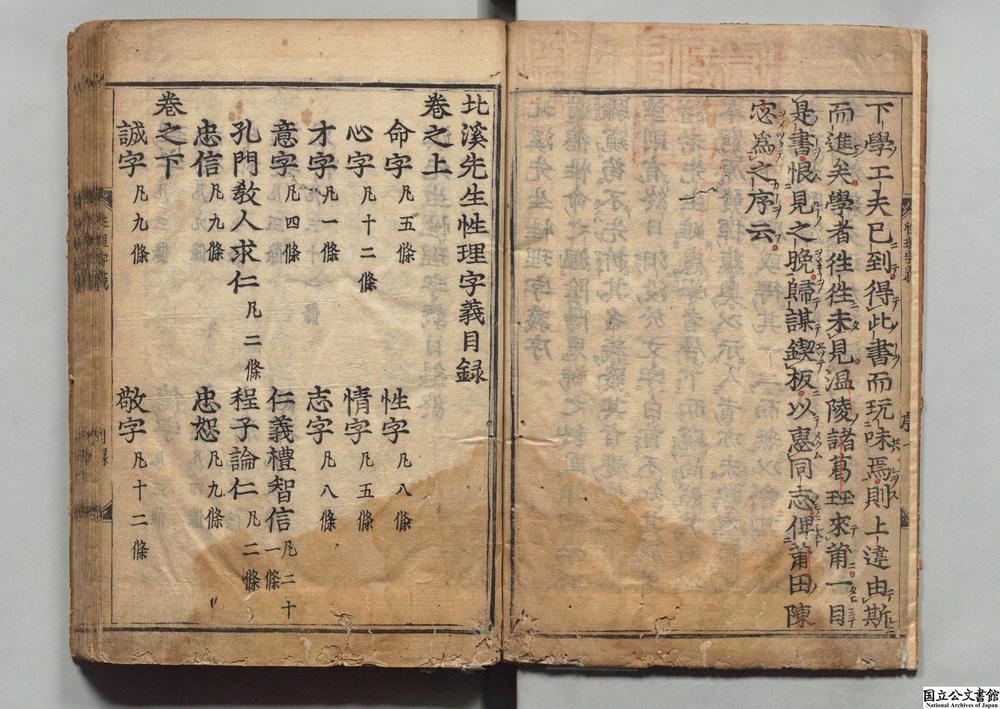 下學工夫已到得此書而玩味焉則上達由斯
而進矣學者徃徃未見温陵諸葛珵來莆一目
是書恨見之晚歸謀鋟板以惠同志俾莆田陳
宓爲之序云
北溪先生性理字義目録
卷之上
命字 凡五條 性字 凡八條
心字 凡十二條 情字 凡五條
才字 凡一條 志字 凡八條
意字 凡四條 仁義禮智信 凡二十一條
孔門敎人求仁 凡二條 程子論仁 凡二條
忠信 凡九條 忠恕 凡九條
卷之下
誠字 凡九條 敬字 凡十二條
国立公文書館
National Archives of Japan